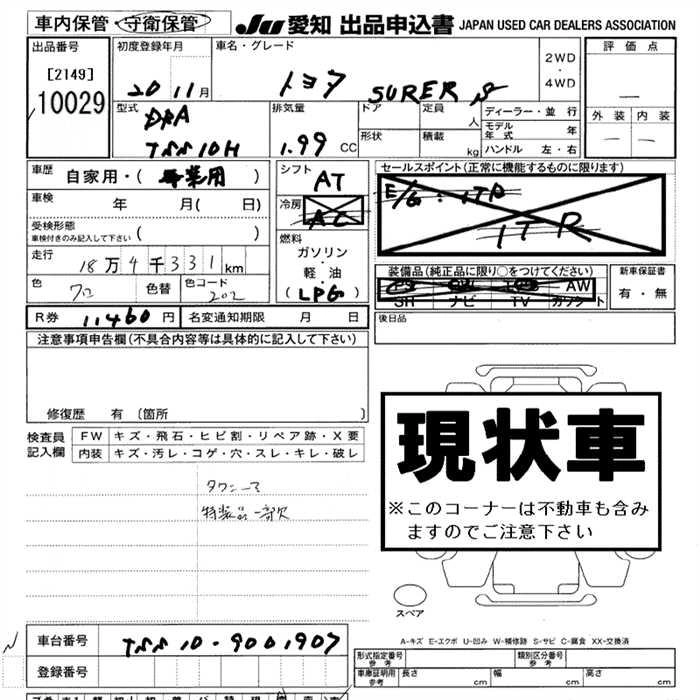 車内保管・守衛保管 JU 愛知 出品申込書 JAPAN USED CAR DEALERS ASSOCIATION
出品番号 初度登録年月 車名・グレード 評価点
[2149] 2WD
・
20 11月 トヨタ SURER S 4WD
10029 型式 排気量 ドア 定員 ディーラー・並行 外装 内装
DBA 人 モデル年式 年
TSS10H 1.99 CC 形状 積載 kg ハンドル 左・右
車歴 自家用・(事業用) シフト AT セールスポイント(正常に機能するものに限ります)
車検 年 月( 日) 冷房 AC E/G : ITR
受検形態 ( ) ITR
車検付きのみ記入して下さい 燃料
走行 18万4千331km ガソリン
・
軽油 装備品(純正品に限り○をつけてください) 新車保証書
色 色替 色コード 202 (LPG) AW
SR ナビ TV 有・無
R券 11460円 名変通知期限 月 日 後日品
注意事項申告欄(不具合内容等は具体的に記入して下さい)
修復歴 有 〔箇所 〕
検査員 FW キズ・飛石・ヒビ割・リペア跡・X要
記入欄 内装 キズ・汚レ・コゲ・穴・スレ・キレ・破レ
現状車
※このコーナーは不動車も含み
ますのでご注意下さい
特装品一部欠
スペア
A-キズ E-エクボ U-凹み W-補修跡 S-サビ C-腐食 XX-交換済
車台番号 TSS10-9001907
登録番号
形式指定番号 参考 類別区分番号 参考
車庫証明用 参考 長さ cm 幅 cm 高さ cm